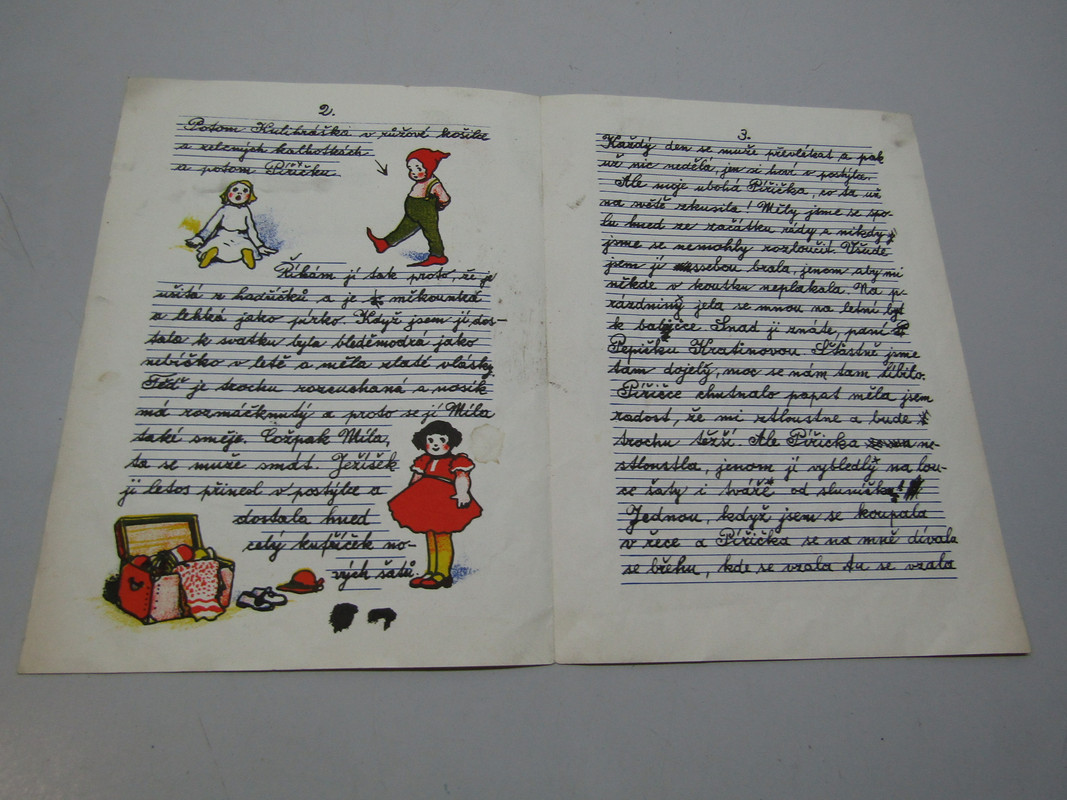 2.
Potom Kulihráška v růžové košilce
a zelených kalhotkách
a potom Pířičku.
Říkám jí tak proto, že je
ušitá z hadříčků a je měkounká
a lehká jako pírko. Když jsem jí dos-
tala k svátku byla bleděmodrá jako
nebíčko v letě a měla zlaté vlásky.
Teď je trochu rozcuchaná a nosík
má rozmáčknutý a proto se jí Míla
také směje. Cožpak Míla,
ta se může smát. Ježíšek
jí letos přinesl v postýlce a
dostala hned
celý kufříček no-
vých šatů.
3.
Každý den se může převlékat a pak
už nic nedělá, jen si hoví v postýlce.
Ale moje ubohá Pířička, co ta už
na světě zkusila! Měly jsme se spo-
lu hned ze začátku rády a nikdy
jsme se nemohly rozloučit. Všude
jsem jí ssebou brala, jenom aby mi
někde v koutku neplakala. Na p-
rázdniny jela se mnou na letní byt
k babičce. Snad ji znáte, paní
Pepičku Kratinovou. Šťastně jsme
tam dojely, moc se nám tam líbilo.
Pířičce chutnalo papat měla jsem
radost, že mi ztloustne a bude
trochu těžší. Ale Pířička ne-
stloustla, jenom jí vybledly na lou-
ce šaty i tváře od sluníčka!
Jednou, když jsem se koupala
v řece a Pířička se na mně dívala
se břehu, kde se vzala tu se vzala